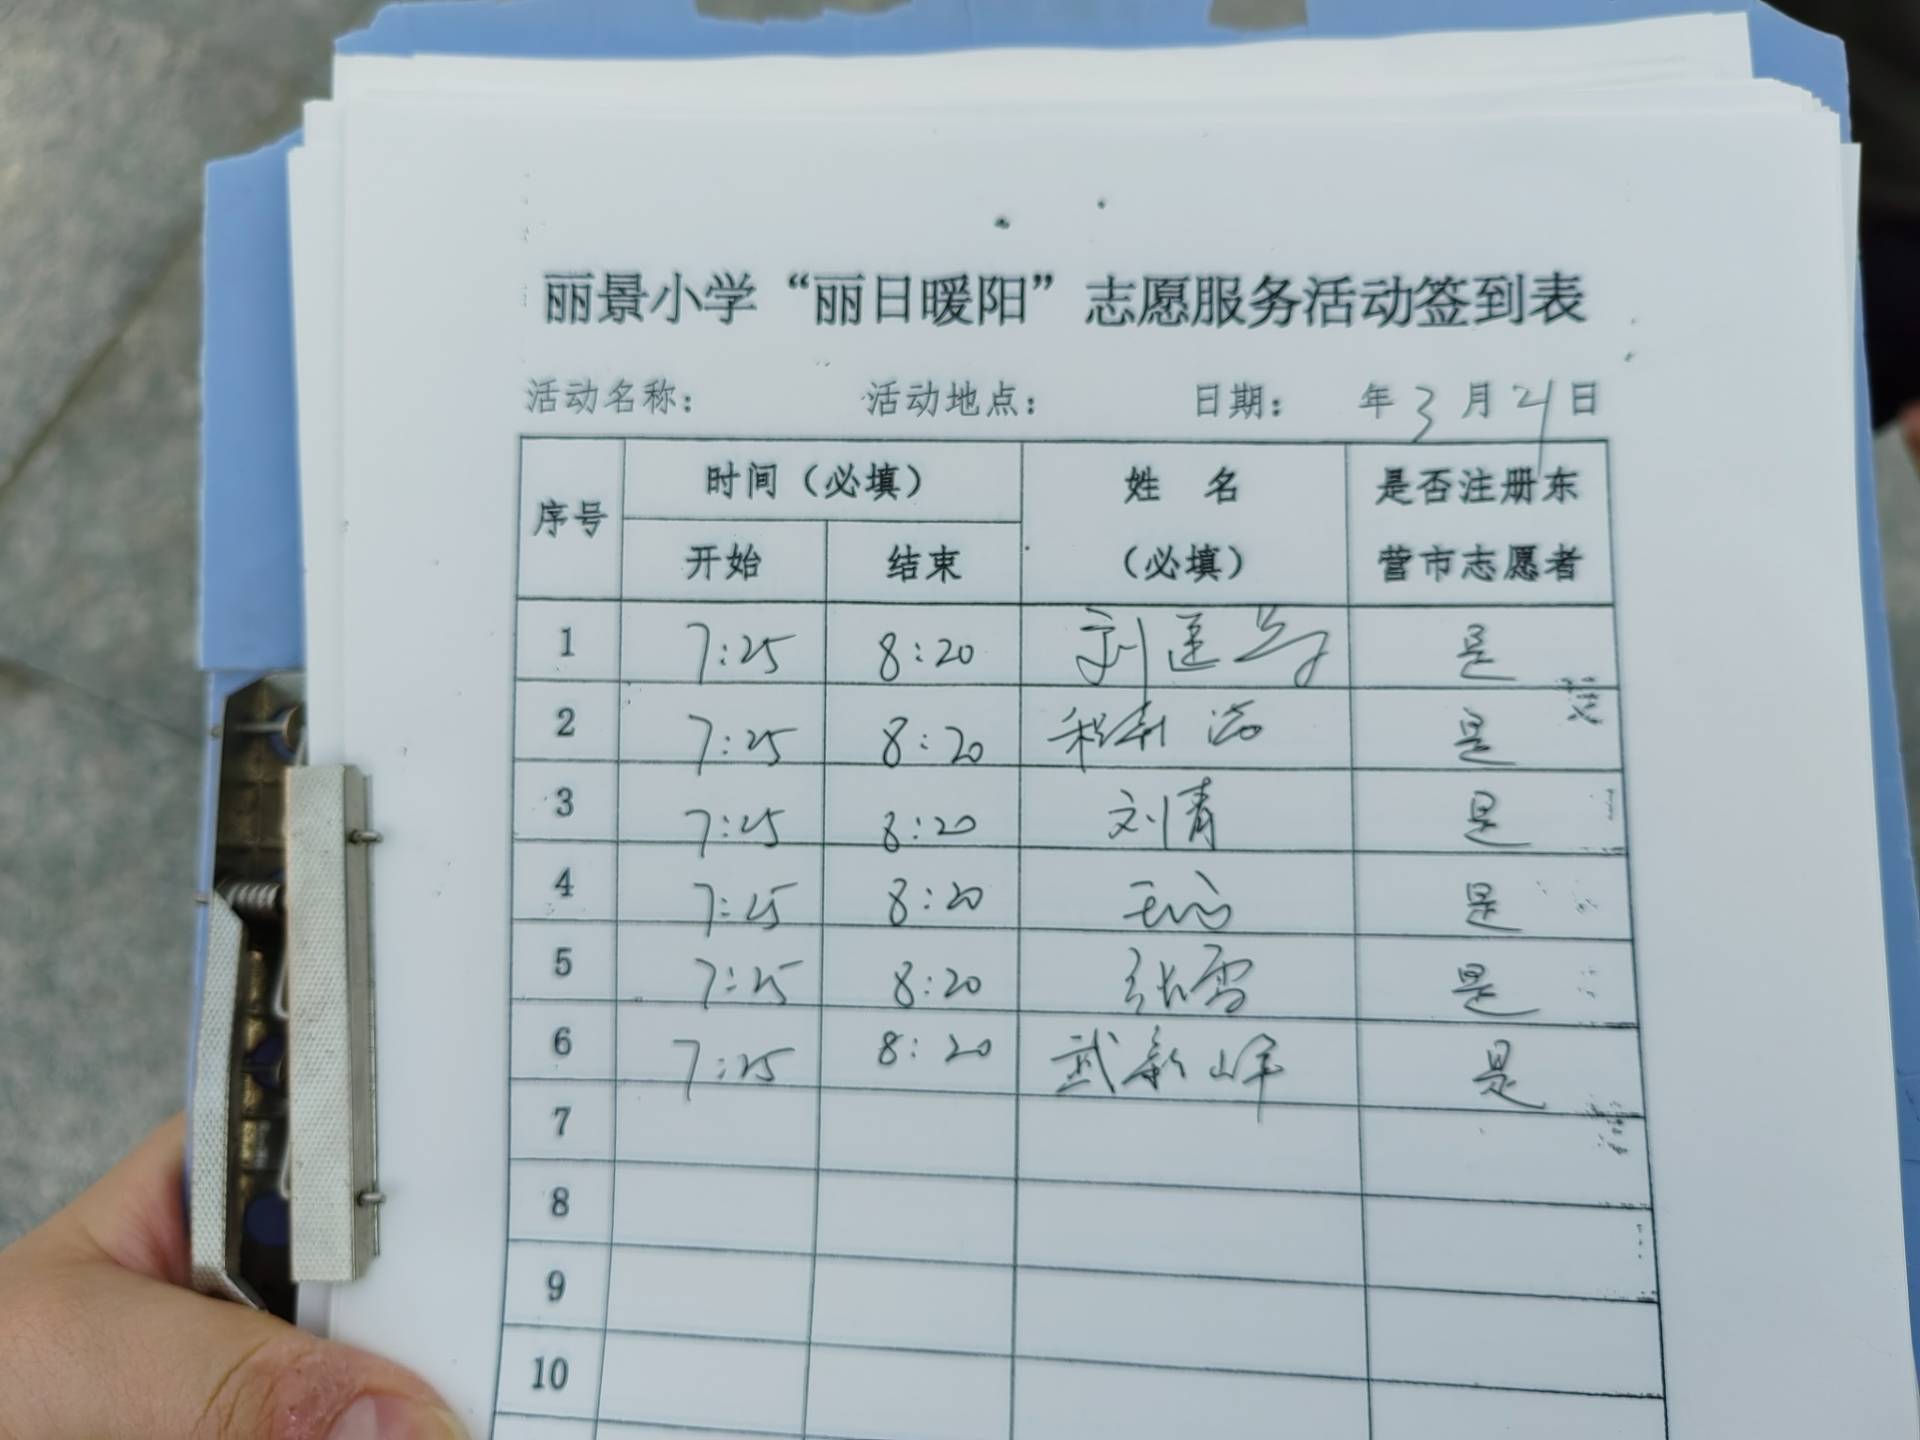 丽景小学“丽日暖阳”志愿服务活动签到表
活动名称： 活动地点： 日期： 年3月21日
序号 时间（必填） 姓 名（必填） 是否注册东营市志愿者
开始 结束
1 7:25 8:20 刘 是
2 7:25 8:20 程 是
3 7:25 8:20 刘清 是
4 7:25 8:20 是
5 7:25 8:20 张雪 是
6 7:25 8:20 武新峰 是
7
8
9
10